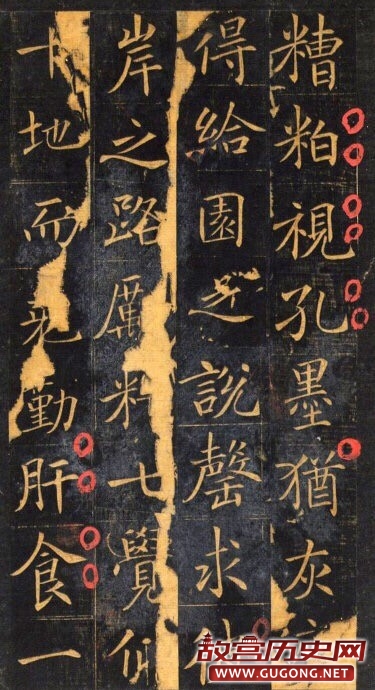 糟粕視孔墨猶灰
得給園之說罄求
岸之路厲精七覺
十地而克勤肝食一
故宫历史网
WWW.GUGONG.NET